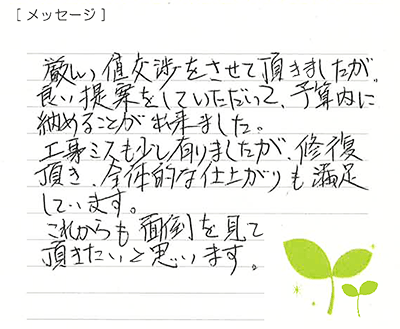 ［メッセージ］
厳しい値交渉をさせて頂きましたが
良い提案をしていただいて、予算内に
納めることが出来ました。
工事ミスも少し有りましたが、修復
頂き、全体的な仕上がりも満足
しています。
これからも面倒を見て
頂きたいと思います。